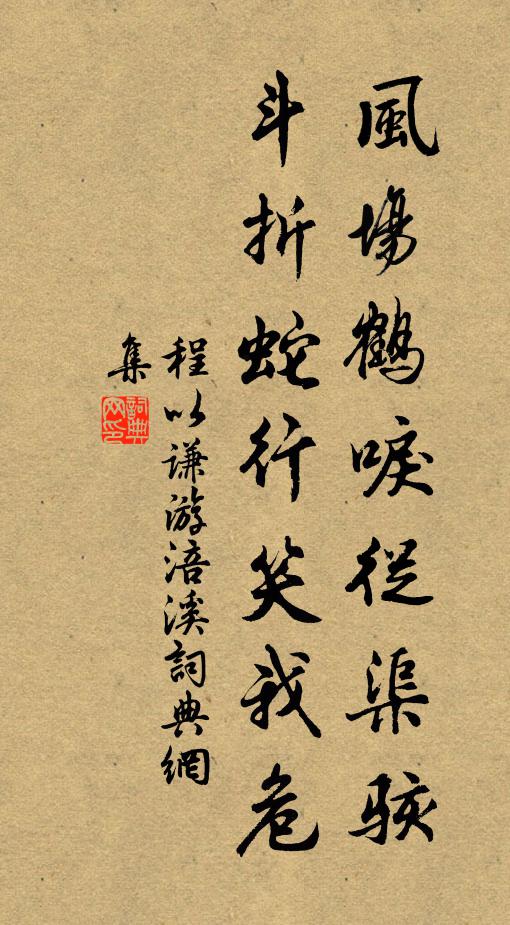 風場鶴唳從渠駭
斗折蛇行笑我危
程以謙游浯溪詞典網
集
詞典
网印